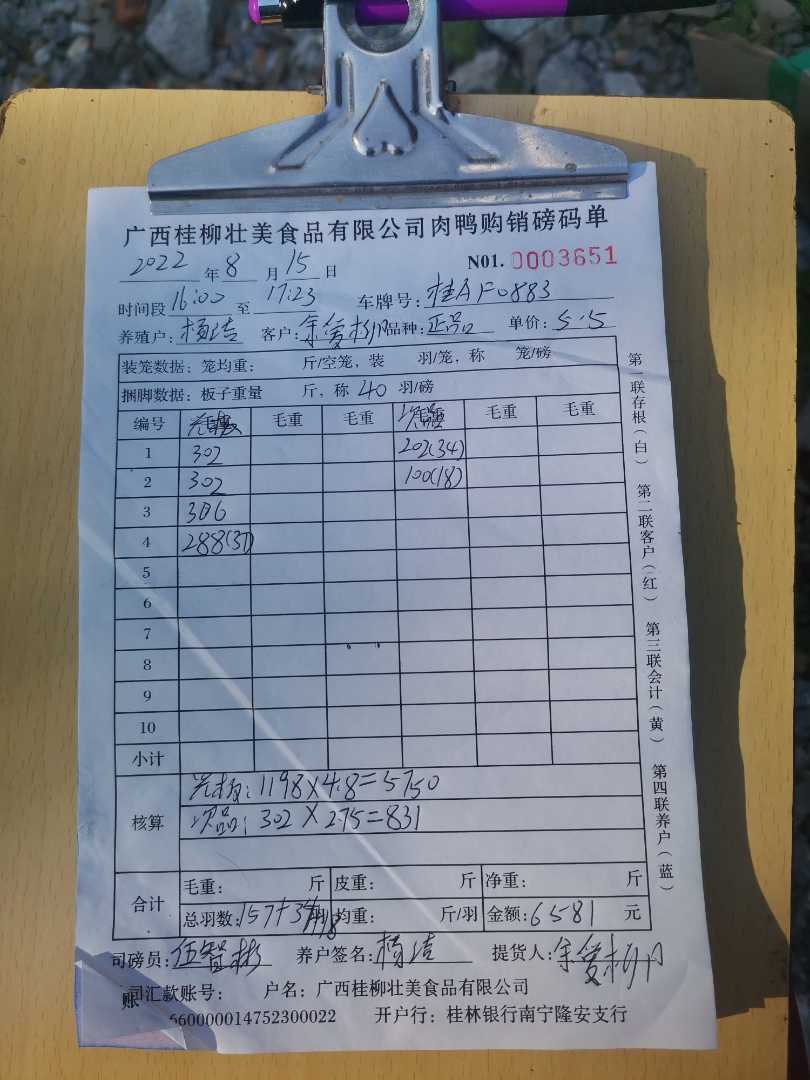 广西桂柳壮美食品有限公司肉鸭购销磅码单
2022年8月15日 N01.0003651
时间段16:00至17:23 车牌号:桂AF0883
养殖户:杨洁 客户: 品种:正品 单价:5.5
装笼数据:笼均重: 斤/空笼,装 羽/笼,称 笼/磅
捆脚数据:板子重量 斤,称40羽/磅
编号 毛重 毛重 毛重 毛重
1 302 202(34)
2 302 100(18)
3 306
4 288(37)
5
6
7
8
9
10
小计
核算 光板:1198×4.8=5750
次品:302×2.75=831
合计 毛重: 斤 皮重: 斤 净重: 斤
总羽数:157+34+18羽 均重: 斤/羽 金额:6581元
司磅员:伍智彬 养户签名:杨洁 提货人:
账 司汇款账号: 户名:广西桂柳壮美食品有限公司
660000014752300022 开户行:桂林银行南宁隆安支行
第一联存根(白) 第二联客户(红) 第三联会计(黄) 第四联养户(蓝)